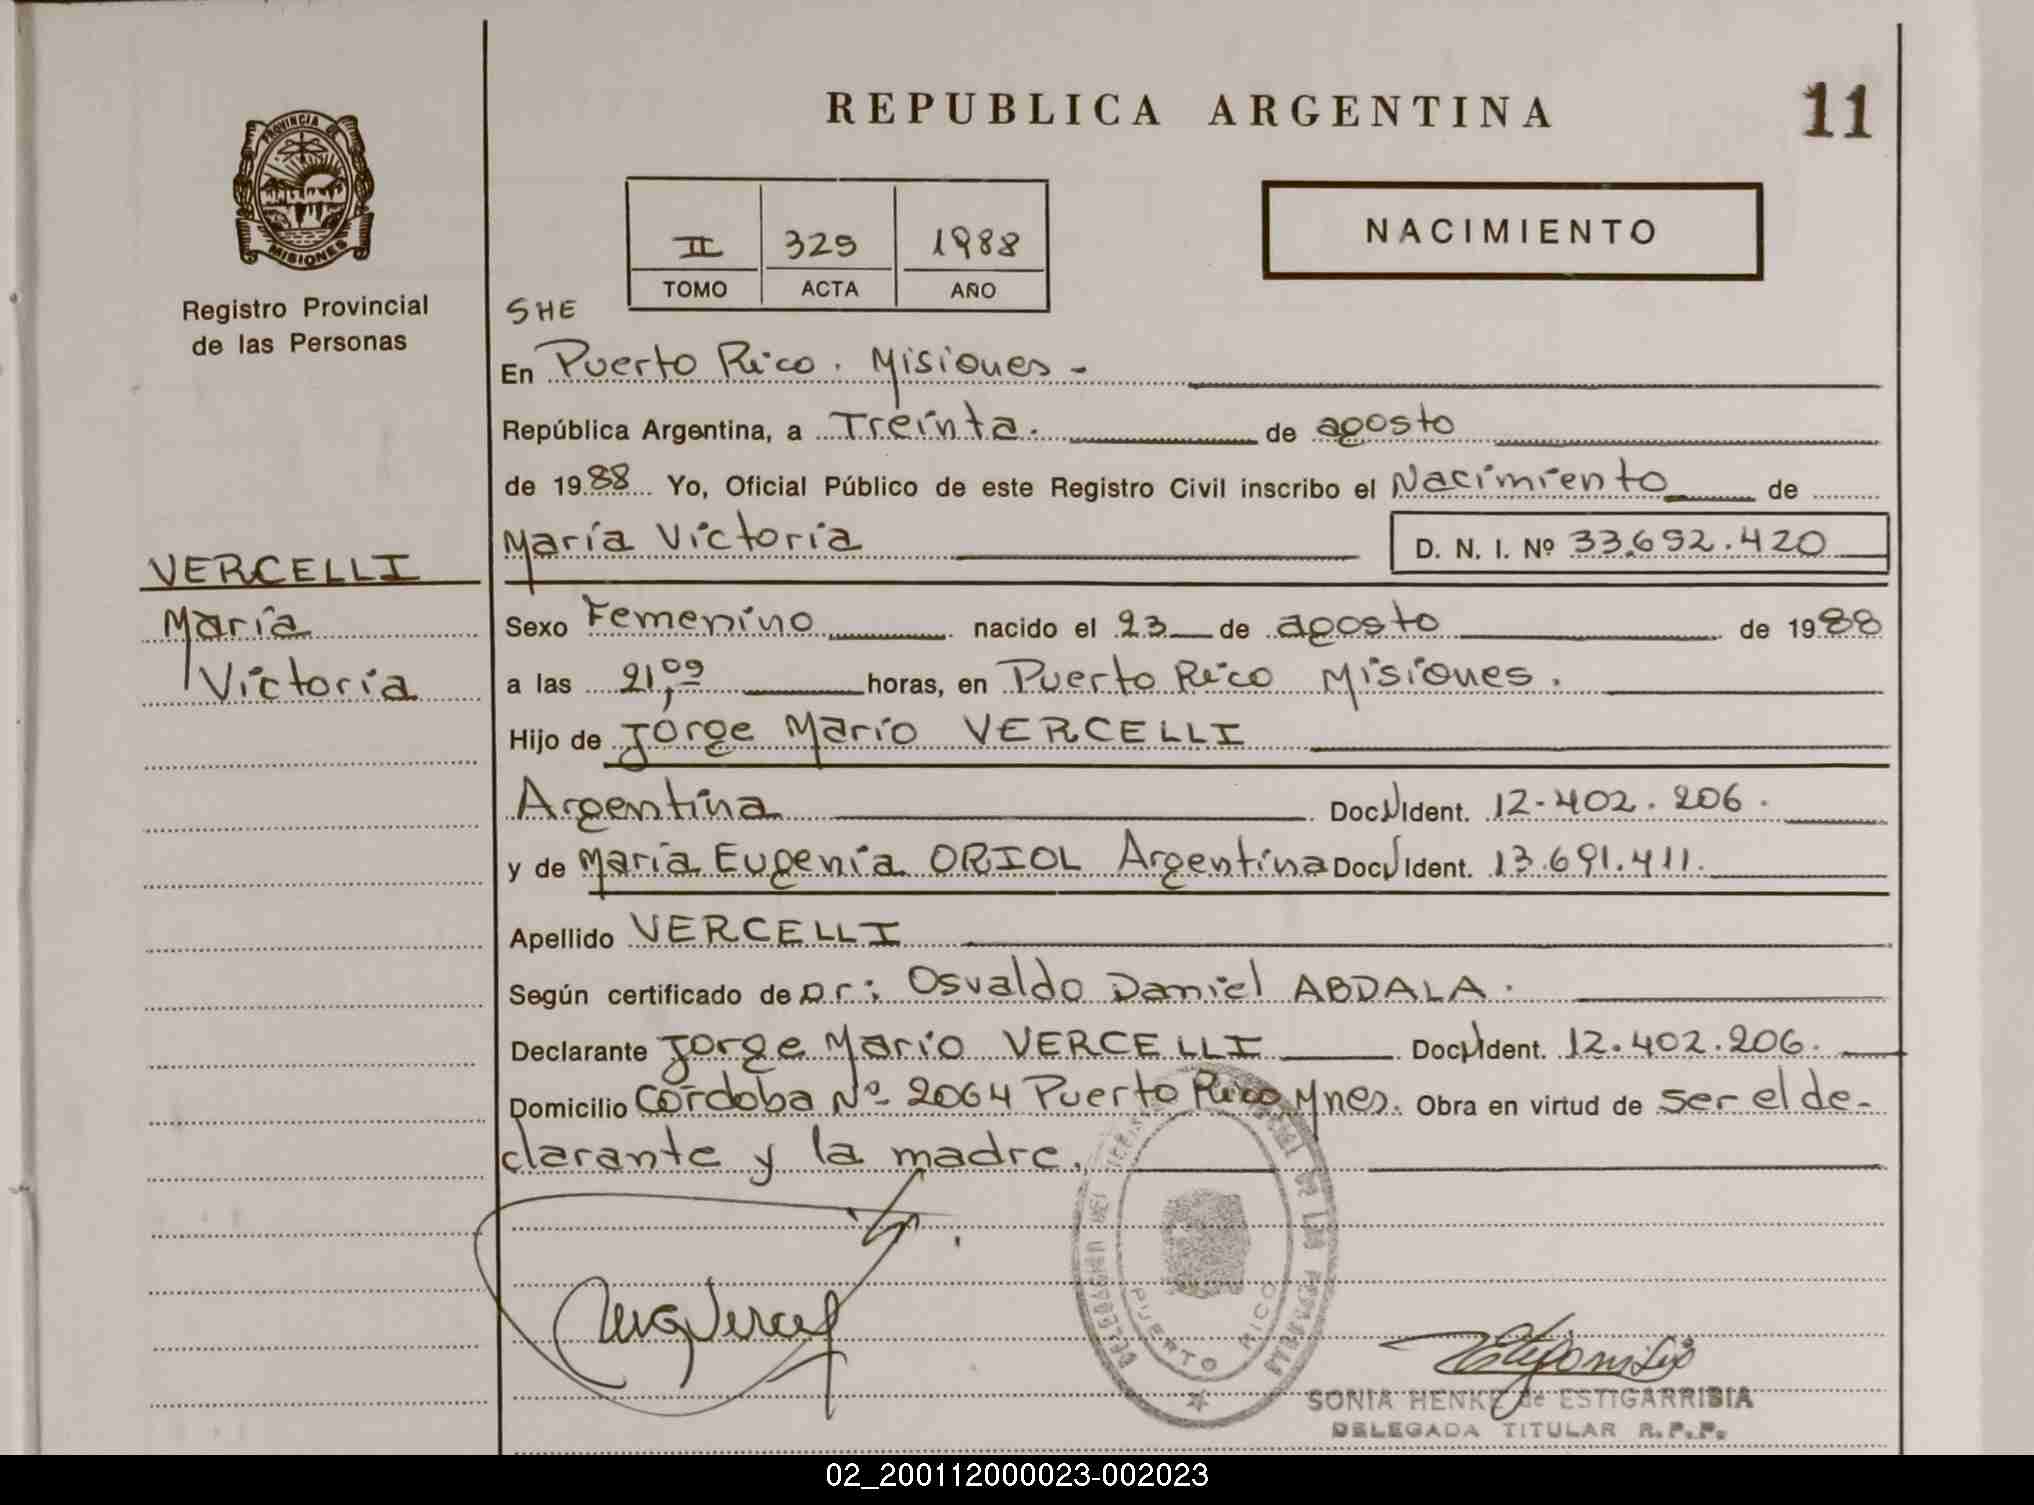 REPUBLICA ARGENTINA
11
PROVINCIA DE
MISIONES
Registro Provincial
de las Personas
II 329 1988
TOMO ACTA AÑO
NACIMIENTO
SHE
En Puerto Rico. Misiones -
República Argentina, a Treinta. de agosto
de 1988 Yo, Oficial Público de este Registro Civil inscribo el Nacimiento de
María Victoria D. N. I. Nº 33.692.420
VERCELLI
María
Victoria
Sexo Femenino nacido el 23 de agosto de 1988
a las 21,09 horas, en Puerto Rico Misiones.
Hijo de Jorge Mario VERCELLI
Argentina Doc. Ident. 12.402.206.
y de María Eugenia ORIOL Argentina Doc. Ident. 13.691.411.
Apellido VERCELLI
Según certificado de Dr: Osvaldo Daniel ABDALA.
Declarante Jorge Mario VERCELLI Doc. Ident. 12.402.206.
Domicilio Córdoba Nº 2064 Puerto Rico Mnes. Obra en virtud de ser el de-
clarante y la madre.
PUERTO RICO
SONIA HENKE de ESTIGARRIBIA
DELEGADA TITULAR R.P.P.
02_200112000023-002023